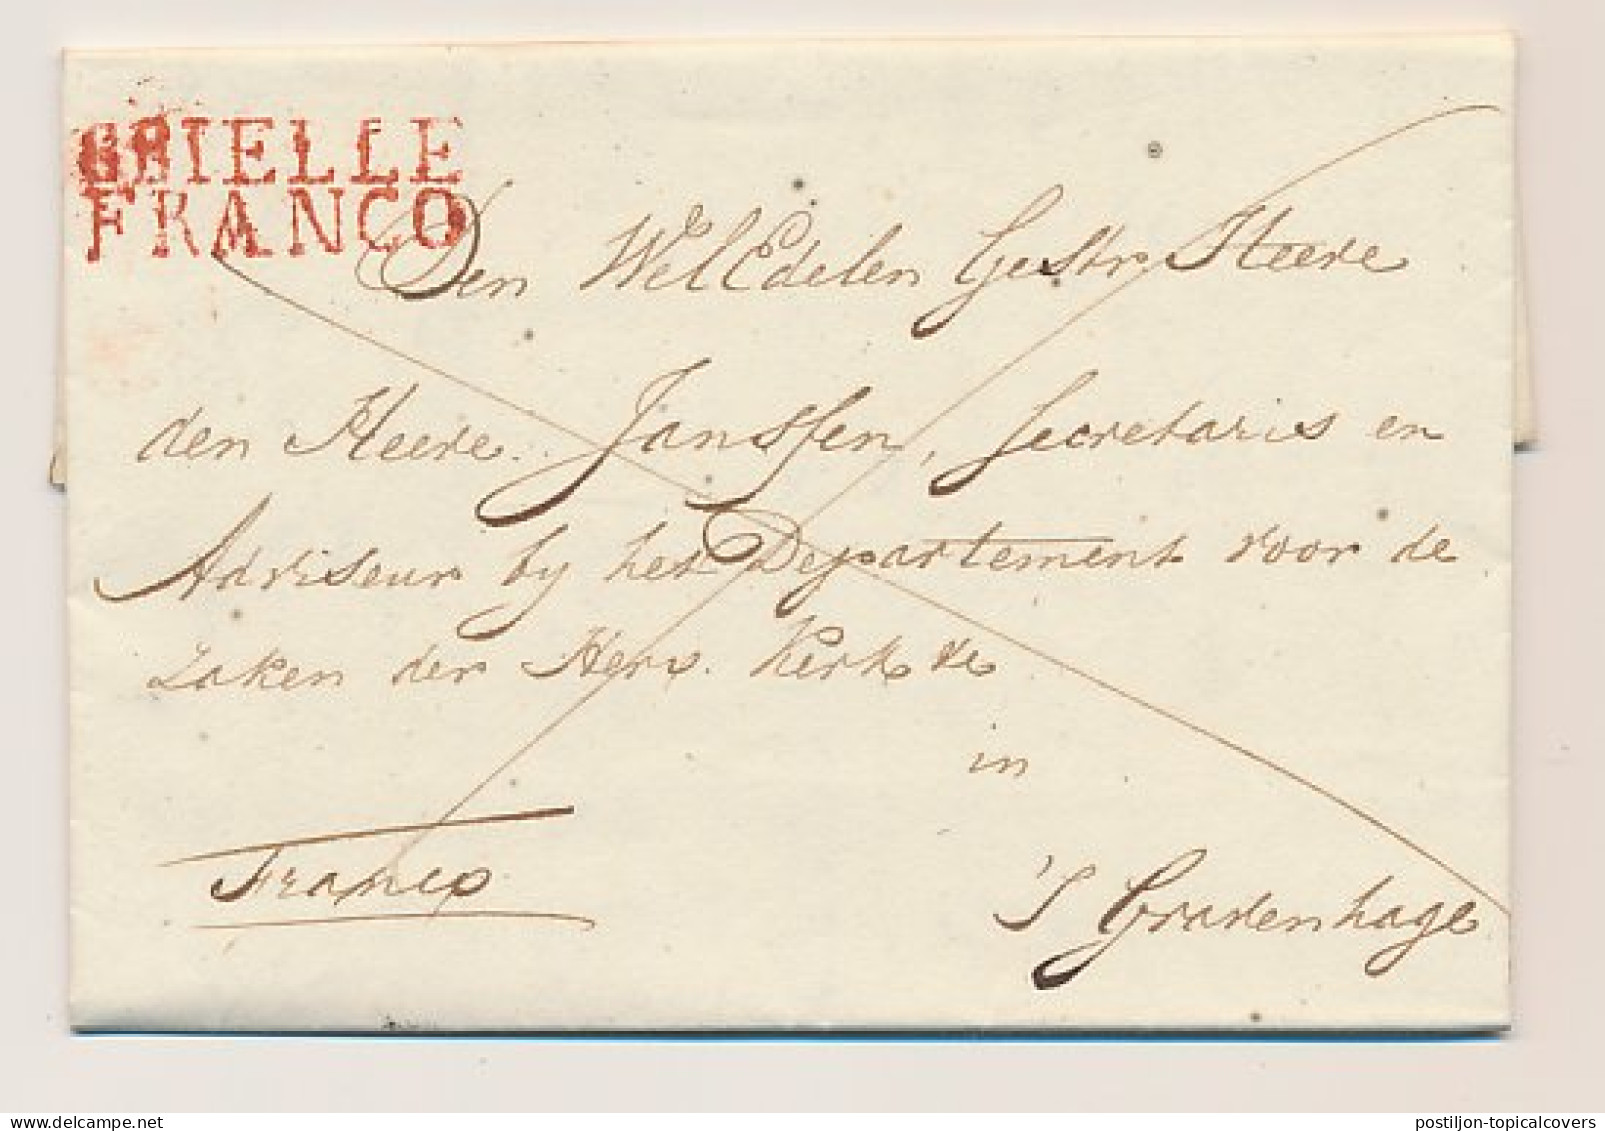 BRIELLE
FRANCO
Den WelEdelen Gestr. Heere
den Heere Janssen, Secretaris en
Adviseur by het Departement voor de
Zaken der Herv. Kerk &c
in
's Gravenhage
Franco
postiljon-topicalcovers